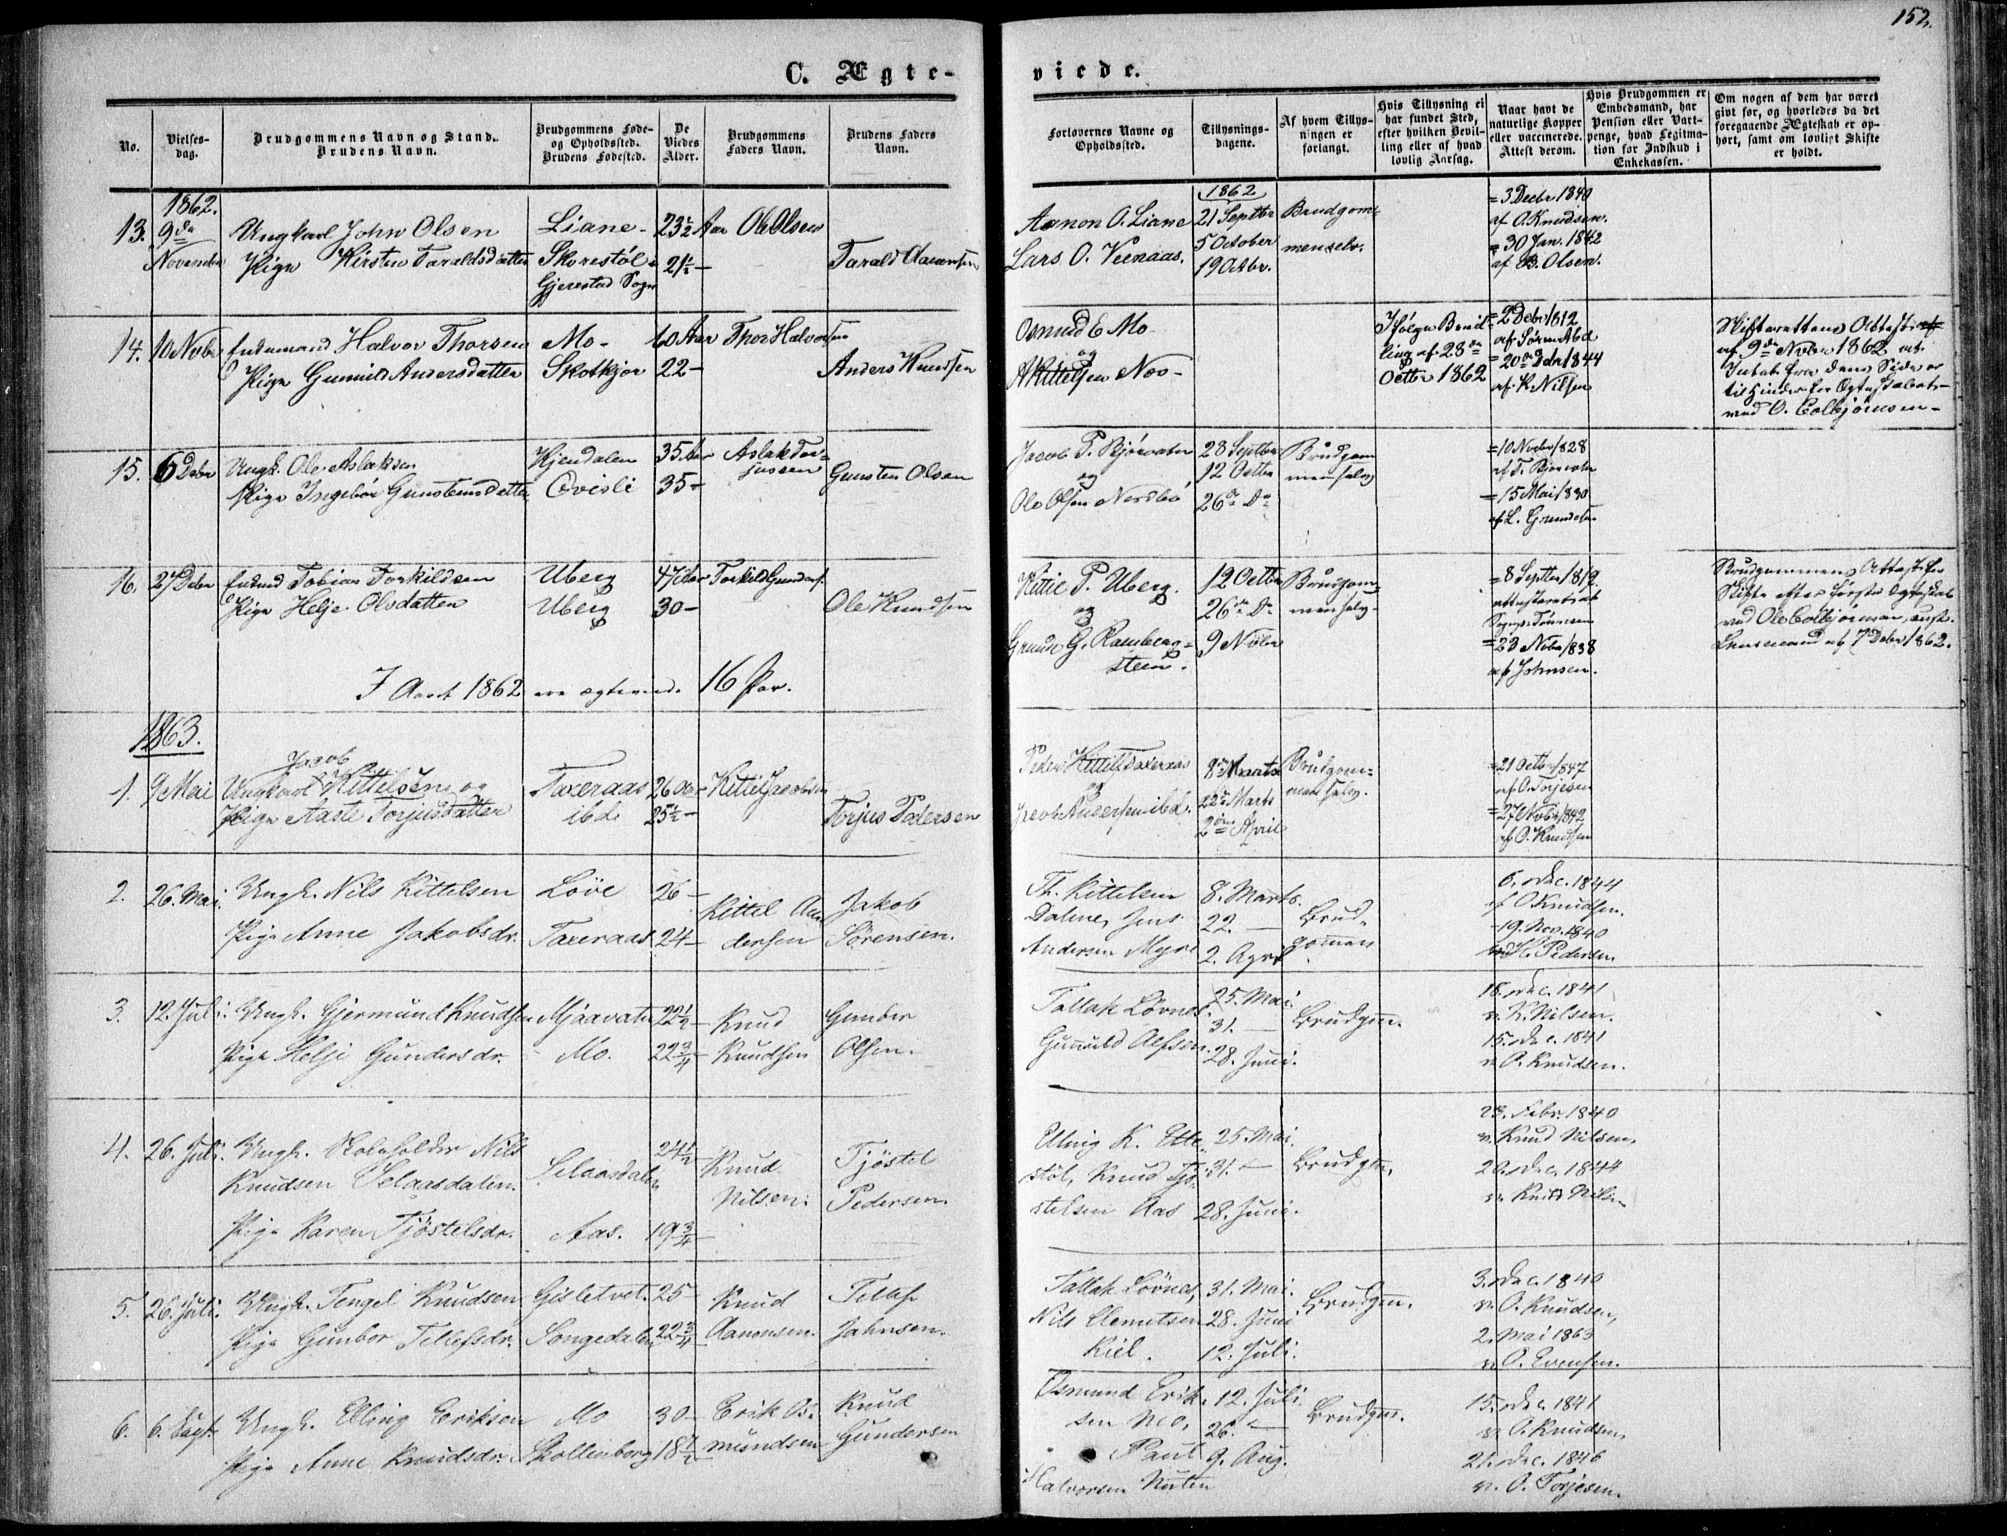 152.
C. Ægte-
viede.
No.
Vielses-
dag.
Brudgommens Navn og Stand.
Brudens Navn.
Brudgommens Føde-
og Opholdssted.
Brudens Fødested.
De
Viedes
Alder.
Brudgommens
Faders Navn.
Brudens Faders
Navn.
Forlovernes Navne og
Opholdssted.
Tillysnings-
dagene.
Af hvem Tillys-
ningen er
forlangt.
Hvis Tillysning ei
har fundet Sted,
efter hvilken Bevil-
ling eller af hvad
lovlig Aarsag.
Naar havt de
naturlige Kopper
eller vaccinerede.
Attest derom.
Hvis Brudgommen er
Embedsmand, har
Pension eller Vart-
penge, hvad Legitima-
tion for Indskud i
Enkekassen.
Om nogen af dem har været
gift før, og hvorledes da det
foregaaende Ægteskab er op-
hørt, samt om lovligt Skifte
er holdt.
1862.
13. 9de November
Ungkarl John Olsen
Pige Kirsten Taraldsdatter
Liane -
Skorestøl -
Gjerestad Sogn
23½ Aar
21½ -
Ole Olsen
Tarald
Aanon O. Liane
Lars O. Veenaas.
1862
21 Septbr
5 October
19 Octbr.
Brudgom-
men selv.
= 3 Decbr 1840
af O. Knudsen.
= 30 Jan. 1842
af B. Olsen.
14. 10 Novbr
Enkemand Halvor Thorsen
Pige Gunild Andersdatter
Mo -
Skotkjær
60 Aar
22 -
Thor Halvorsen
Anders Knudsen
Osmund E Mo -
og
A Kittelsen Næs -
Ifølge Bevil-
ling af 28de
Octbr 1862
= 2 Debr 1812
af Søren Abel
= 20de Debr 1844
af K. Nilsen
Skifterettens Attest
af 9de Novbr 1862 at
Intet fra dens Side er
til Hinder for Ægteskabet -
ved O. Colbjørnsen -
15. 6 Debr
Ungk. Ole Aslaksen
Pige Ingebør Gunstensdatter
Kjendalen
Qvisli
35 Aar
35 -
Aslak Tor-
jussen
Gunsten Olsen
Jacob P. Bjørvatn
og
Ole Olsen Nordbø
28 Septbr
12 Octbr
26de Do
Brudgom
men selv
= 10 Novbr 1828
af T. Bjorvatn
= 15 Mai 1830
af L.
16. 27 Debr
Enkmd Tobias Torkildsen
Pige Helje Olsdatter
Uberg
Uberg
47 Aar
30 -
Torkild Gunders.
Ole Knudsen
Kittil P. Uberg.
og
G. Ramberg-
steen.
12 Octbr
26de Do
9 Novbr
Brudgom-
men selv -
= 8 Septbr 1819.
attesteret af
= 23 Novbr 1838
af Johnsen.
Brudgommens Attest for
Skifte efter første Ægteskab
ved Ole Colbjørnsen, const.
Lensmand af 7 Debr 1862.
I Aaret 1862 ere ægteviede 16 Par.
1863.
1. 9 Mai
Jacob
Ungkarl Kittelsen og
Pige Aaste Torjusdatter
Taxeraas
ibd.
26 Aar
25½ -
Kittel Jacobsen
Torjus Pedersen
Peder Kittels. Taxeraas
og
Andersen ibd.
8de Marts
22de Marts
2den April
Brudgom-
men selv.
= 21 Octbr 1847
af O. Torjesen
= 27 Novbr 1842
af O. Knudsen
2. 26. Mai.
Ungk. Nils Kittelsen
Pige Anne Jakobsdr.
Løve
Taxeraas
26 -
24 -
Kittel An-
dersen
Jakob
Sørensen.
Th. Kittelsen
Dalene, Jens
Andersen Myre
8. Marts.
22. -
2. April
Brud-
gommen
6. Dec. 1844
af O. Knudsen.
19. Nov. 1840
ved H. Pedersen
3. 12. Juli.
Ungk. Gjermund Knudsen
Pige Helje Gundersdr.
Mjaavatn
Mo.
22½
22¾
Knud
Knudsen
Gunder
Olsen.
Tallak Lövnes.
Gunuld Alfsen
25. Mai.
31. -
28. Juni.
Brudgm.
18. Dec. 1841
v. K. Nilsen.
15. Dec. 1841
v. O. Knudsen.
4. 26. Juli.
Ungk. Skoleholder Nils
Knudsen Selaasdalen.
Pige Karen Tjöstelsdr.
Selaasdalen
Aas.
24½
19¾
Knud
Nilsen.
Tjöstel
Pedersen.
Ellvig K. Ette-
støl, Knud Tjö-
stelsen Aas
25. Mai.
31. -
28. Juni.
Brudgm.
23. Febr. 1840
v. Knud Nilsen,
20. Dec. 1844
v. Knud Nilsen
5. 26. Juli.
Ungk. Tengel Knudsen
Pige Gunbor Tellefsdr.
Gisletvet.
Songedalen
25
22¾
Knud
Aanonsen.
Tellef
Jahnsen.
Tallak Lövnes,
Nils Clemetsen
Kiil.
31. Mai.
28. Juni
12. Juli.
Brudgm.
3. Dec. 1840
v. O. Knudsen,
2. Mai 1863
v. O. Evensen.
6. 6. Sept.
Ungk. Elling Eriksen
Pige Anne Knudsdr.
Mo
Skollenborg
30 -
18½
Erik Os-
mundsen
Knud
Gundersen
Osmund Erik-
sen Mo,
Paul
Halvorsen Nuten
12. Juli
26. -
9. Aug.
Brudgm.
15. Dec. 1841
v. O. Knudsen,
21. Dec. 1846
v. O. Torjesen.